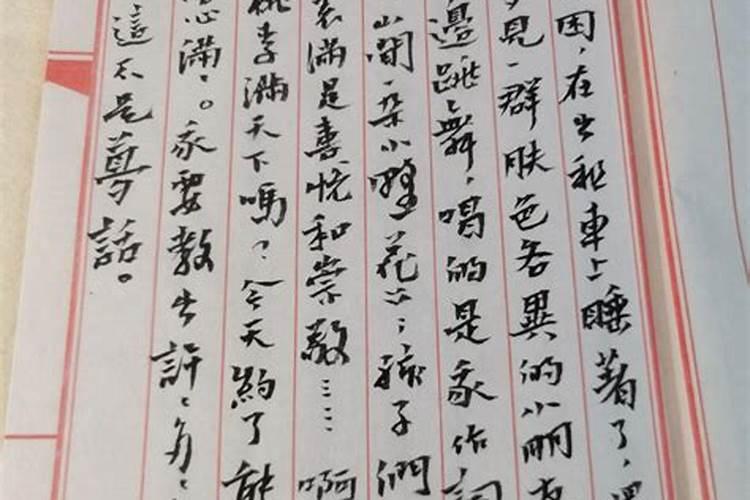 困，在出租車上睡着了，
見一群膚色各異的小朋友
邊跳舞，唱的是我作詞
山間一朵小野花》；孩子們
滿是喜悅和崇敬……啊
桃李滿天下嗎？今天約了
滿滿。我要教出許許多多
這不是夢話。